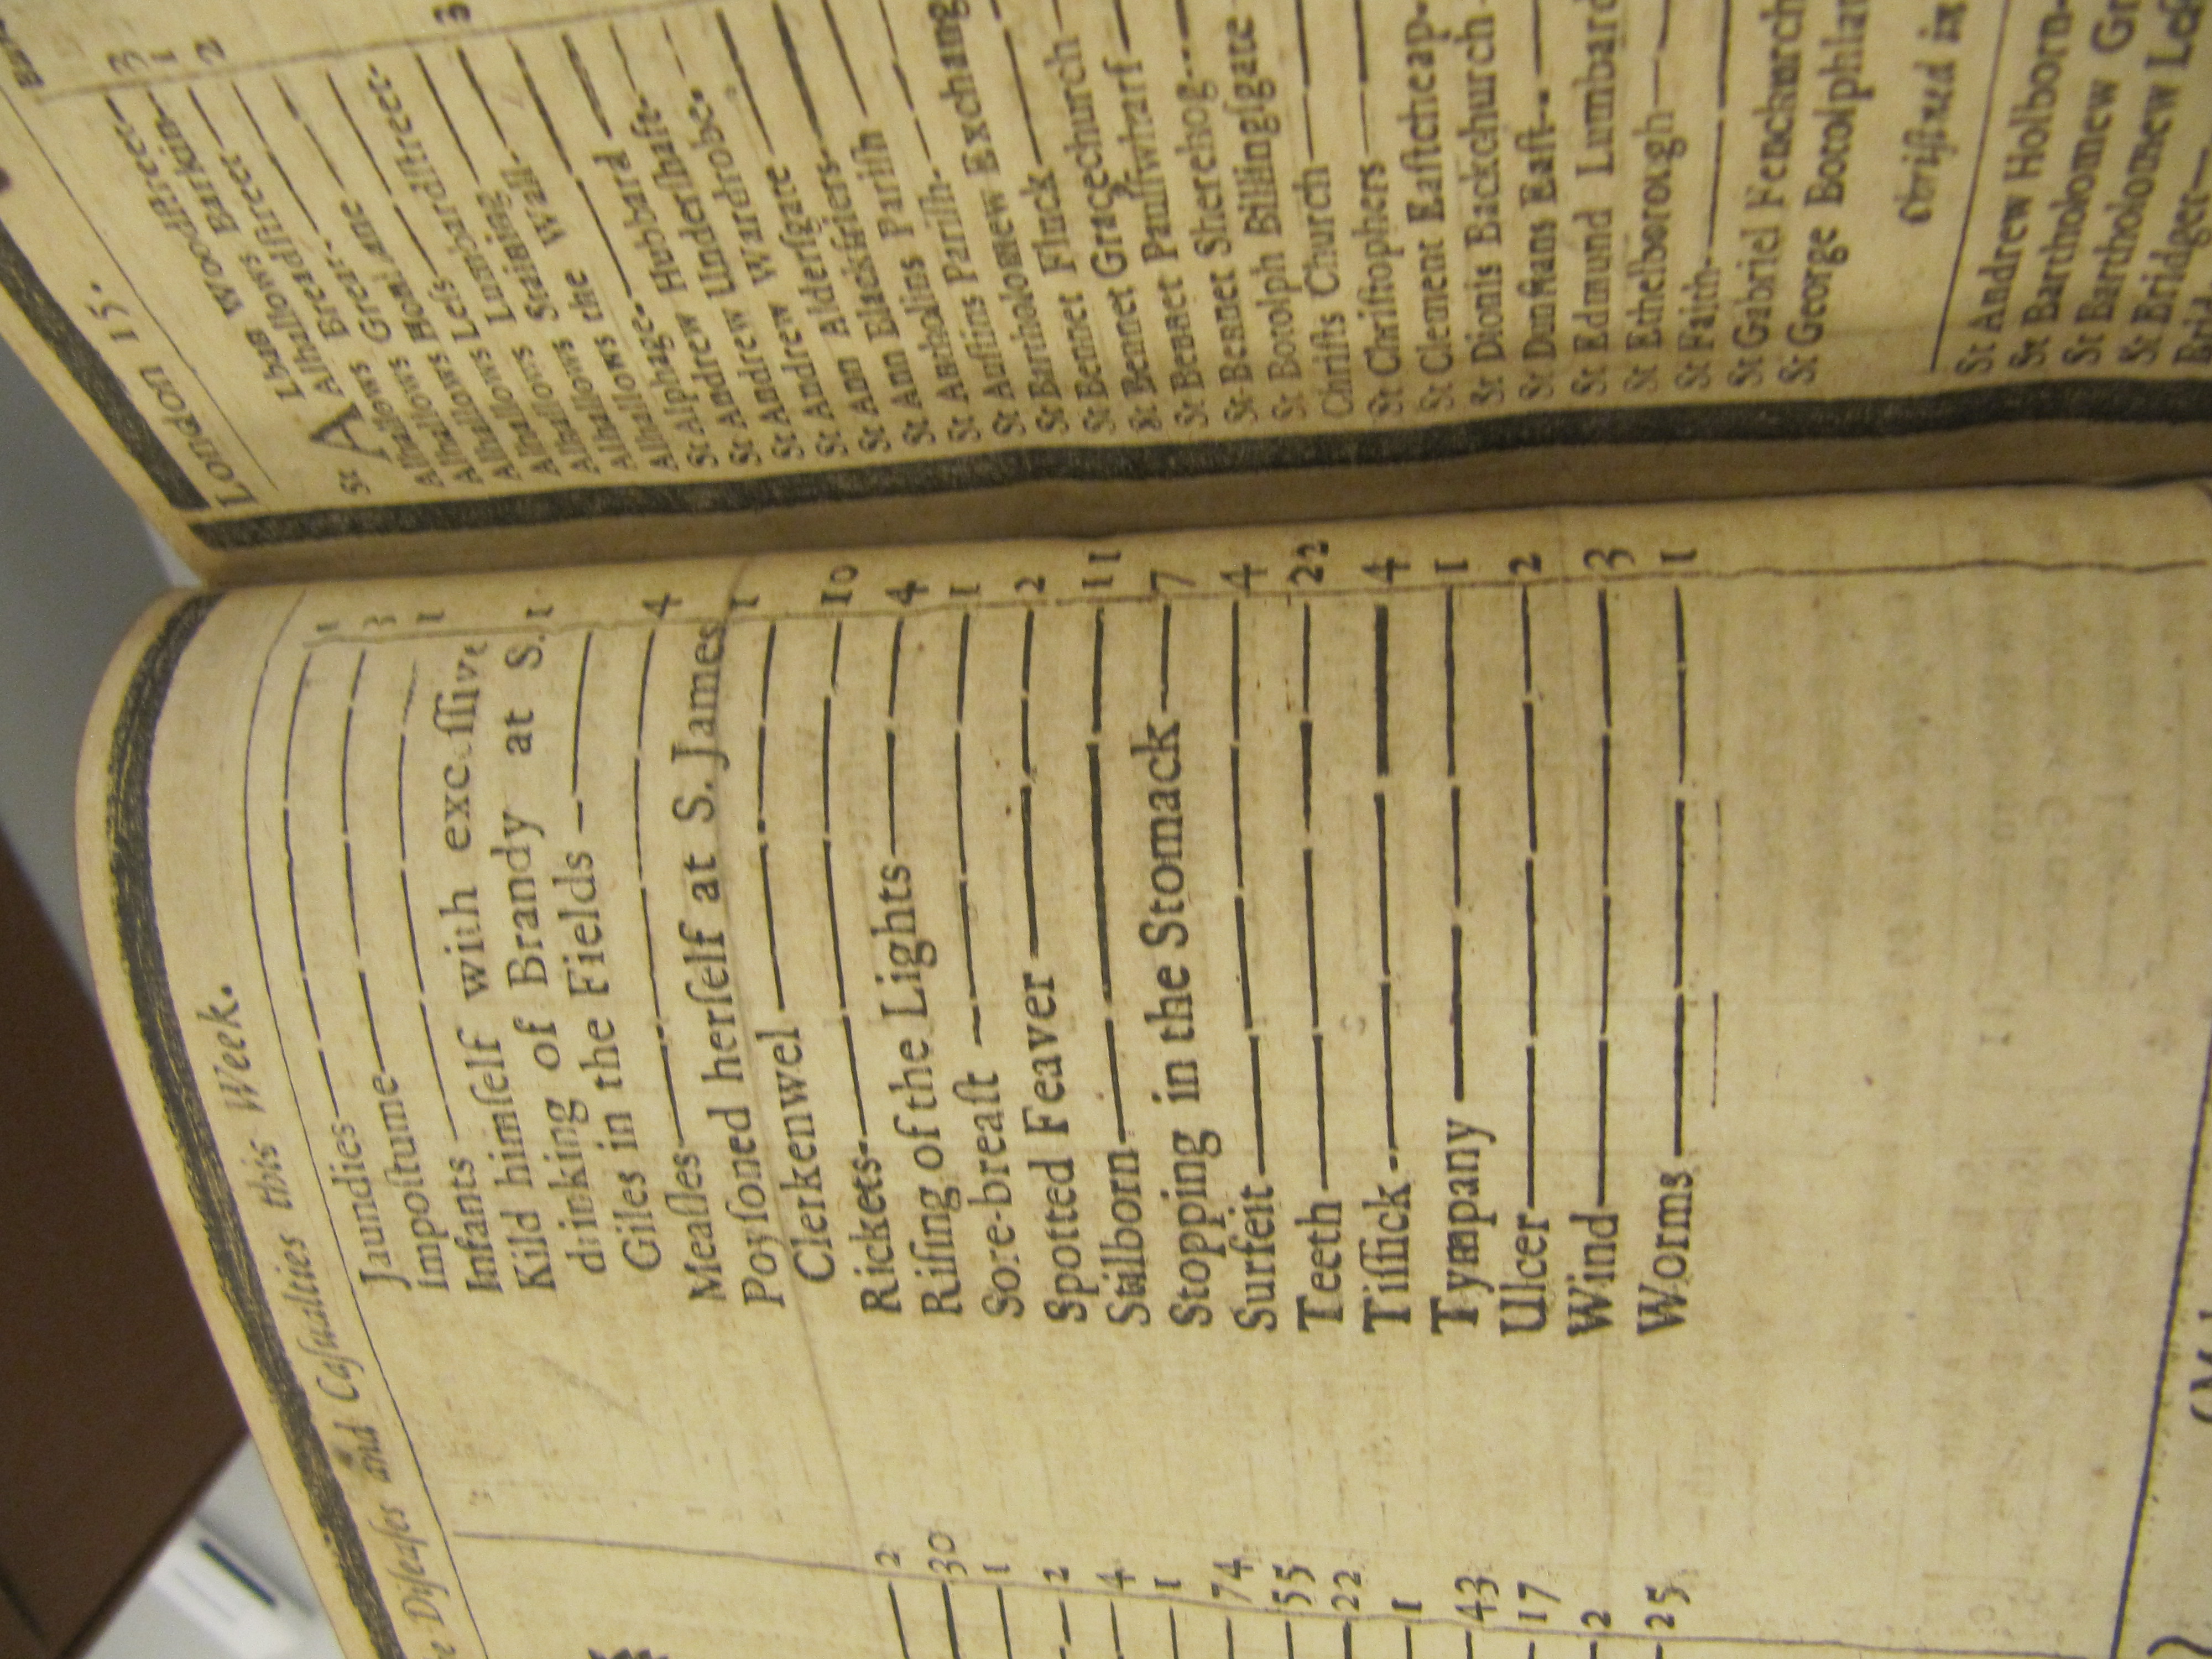 Diſeaſes and Caſualties this Week.
2
30
1
2
4
1
74
55
22
1
43
17
2
25
Jaundies 1
Impoſtume 3
Infants 1
Kild himſelf with exceſſive
drinking of Brandy at S.
Giles in the Fields 1
Meaſles 4
Poyſoned herſelf at S. James
Clerkenwel 1
Rickets 10
Riſing of the Lights 4
Sore-breaſt 1
Spotted Feaver 2
Stilborn 11
Stopping in the Stomack 7
Surfeit 4
Teeth 22
Tiſſick 4
Tympany 1
Ulcer 2
Wind 3
Worms 1
London 15.
St ALban Woodſtreet 3
Alhallows Barkin 1
Alhallows Breadſtreet 2
Alhallows Great
Alhallows Honilane
Alhallows Leſs
Alhallows Lumbardſtreet
Alhallows Staining 3
Alhallows the Wall
St Alphage
St Andrew Hubbard
St Andrew Underſhaft
St Andrew Wardrobe
St Ann Alderſgate
St Ann Blackfriers
St Antholins Pariſh
St Auſtins Pariſh
St Bartholomew Exchang
St Bennet Fynck
St Bennet Gracechurch
St Bennet Paulſwharf
St Bennet Sherehog
St Botolph Billingſgate
Chriſts Church
St Chriſtophers
St Clement Eaſtcheap
St Dionis Backchurch
St Dunſtans Eaſt
St Edmund Lumbard
St Ethelborough
St Faith
St Gabriel Fenchurch
St George Botolphlan
Chriſtned in
St Andrew Holborn
St Bartholomew Gr
St Bartholomew Leſs
St Bridget